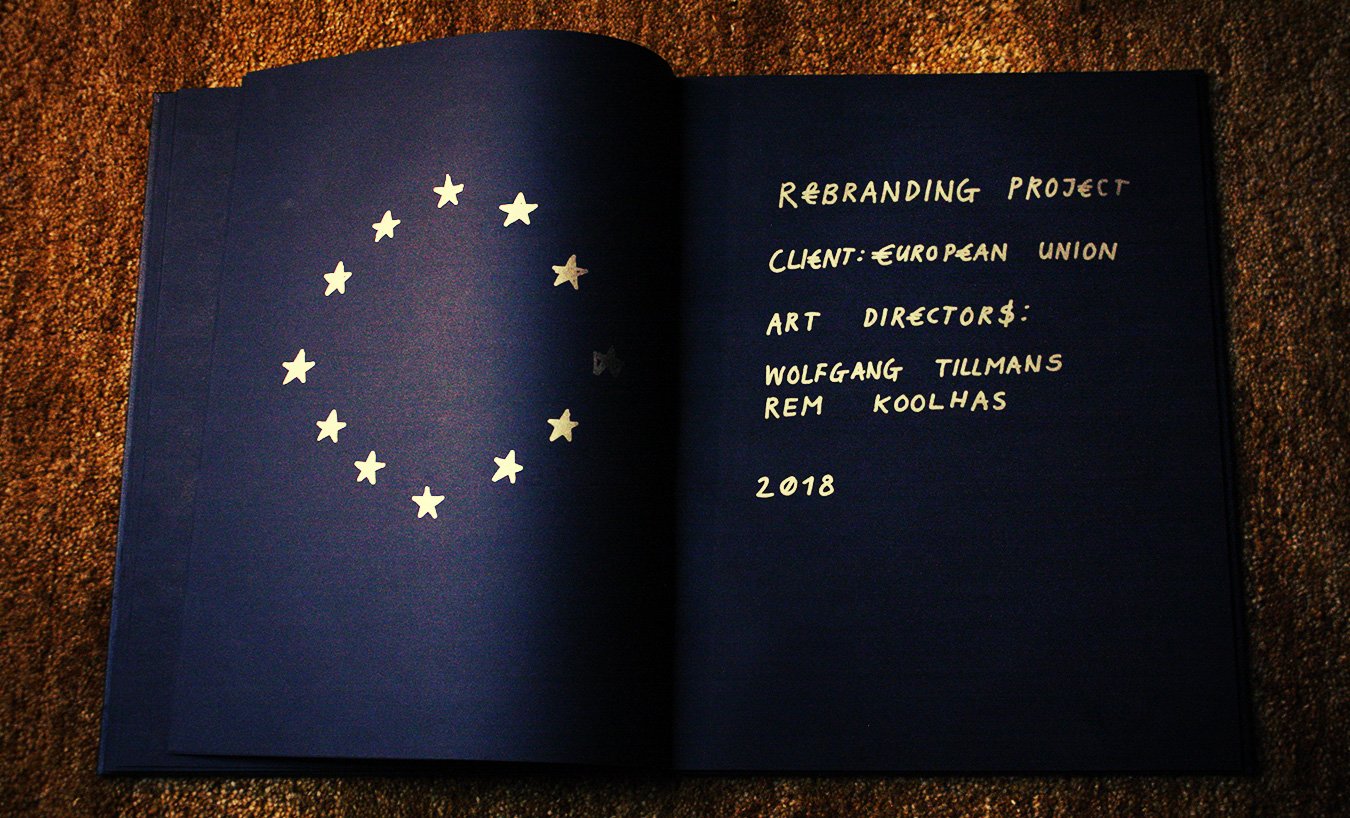 R€BRANDING PROJ€CT
CLI€NT: €UROP€AN UNION
ART DIR€CTOR$:
WOLFGANG TILLMANS
REM KOOLHAS
2018